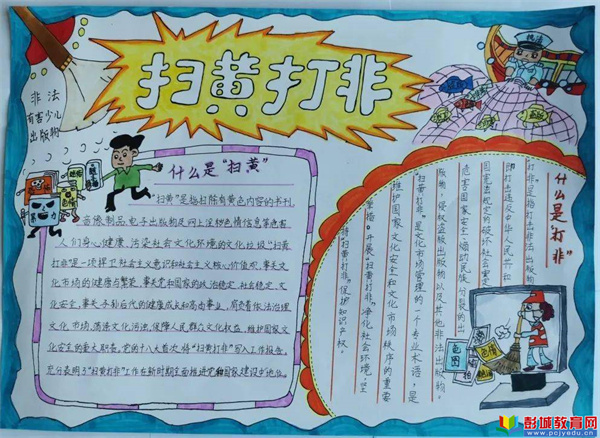 扫黄打非
非法
有害少儿
出版物
执法
什么是“扫黄”
“扫黄”是指扫除有黄色内容的书刊、
音像制品、电子出版物及网上淫秽色情信息等危害
人们身心健康、污染社会文化环境的文化垃圾“扫黄
打非”是一项捍卫社会主义意识和社会主义核心价值观,事关文
化市场的健康与繁荣,事关党和国家的政治稳定、社会稳定、文
化安全,事关子孙后代的健康成长和高尚事业,肩负着依法治理
文化市场,荡涤文化污浊,保障人民群众文化权益,维护国家文
化安全的重大职责。党的十八大首次将“扫黄打非”写入工作报告,
充分表明了“扫黄打非”工作在新时期全面推进党和国家建设中地位。
什么是“打非”
打非”是指打击非法出版物
即打击违反中华人民共和
国宪法规定的破坏社会安定
危害国家安全、煽动民族分裂的出
版物,侵权盗版出版物以及其他非法出版物。
“扫黄打非”是文化市场管理的一个专业术语,是
维护国家文化安全和文化市场秩序的重要
举措。开展“扫黄打非”净化社会环境,坚
持“扫黄打非”促护知识产权。
暴力
色情
彭城教育网
www.pcjyedu.cn